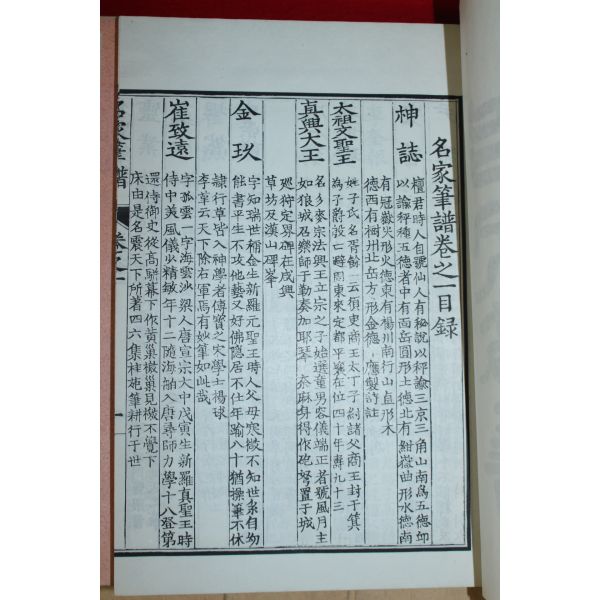 名家筆譜卷之一目録
神誌
檀君時人自號仙人有秘說以秤諭三京三角山南爲五德邱
以諭秤錘五德者中有面岳圓形土德北有紺嶽曲形水德南
有冠嶽尖形火德東有楊川南行山直形木
德西有樹州北岳方形金德 應製詩註
太祖文聖王
姓子氏名胥餘一云須臾商王太丁子紂諸父商王封于箕
為子爵殷亡避周東來定都平壤在位四十年壽九十三
真興大王
名彡麥宗法興王立宗之子始選童男容儀端正者號風月主
如狼城召樂師于勒奏加耶琴 奈麻身得作砲弩置于城
廵狩定界碑在咸興
草坊及漢山碑峯
金玖
字知瑞世稱金生新羅元聖王時人父母㣲不知世系自幼
能書平生不攻他藝又好佛隱居不仕年踰八十猶操筆不休
隷行草皆入神學者傳寳之宋學士楊球
李革云天下除右軍焉有妙筆如此哉
崔致遠
字孤雲一字海雲沙梁人唐宣宗大中戊寅生新羅真聖王時
侍中美風儀少精敏年十二隨海舶入唐尋師力學十八登第
還侍御史從高駢幕下作黃巢檄巢見檄不覺下
床由是名震天下所著四六集桂苑筆耕行于世
名家筆譜 卷之一 一